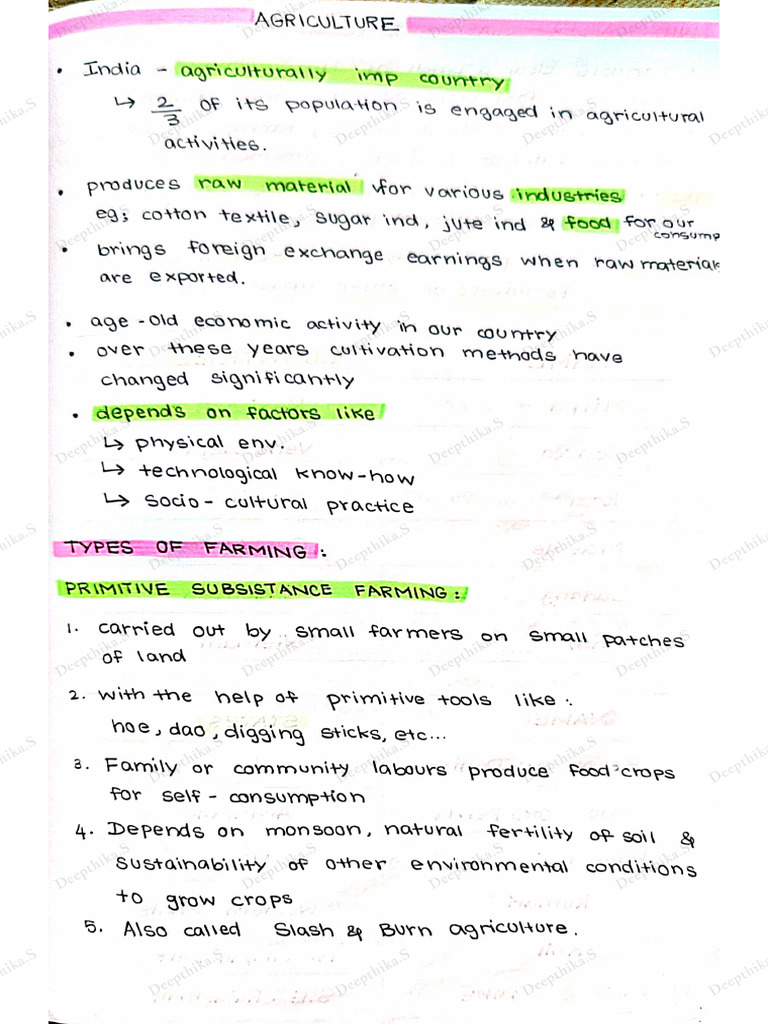 AGRICULTURE
• India - agriculturally imp country
↳ 2/3 of its population is engaged in agricultural
activities.
• produces raw material for various industries
eg; cotton textile, sugar ind, jute ind & food for our
consump
• brings foreign exchange earnings when raw material
are exported.
• age-old economic activity in our country
• over these years cultivation methods have
changed significantly
• depends on factors like
↳ physical env.
↳ technological know-how
↳ socio-cultural practice
TYPES OF FARMING:
PRIMITIVE SUBSISTANCE FARMING:
1. carried out by small farmers on small patches
of land
2. with the help of primitive tools like:
hoe, dao, digging sticks, etc...
3. Family or community labours produce food crops
for self-consumption
4. Depends on monsoon, natural fertility of soil &
sustainability of other environmental conditions
to grow crops
5. Also called Slash & Burn agriculture.
Deepthika.S